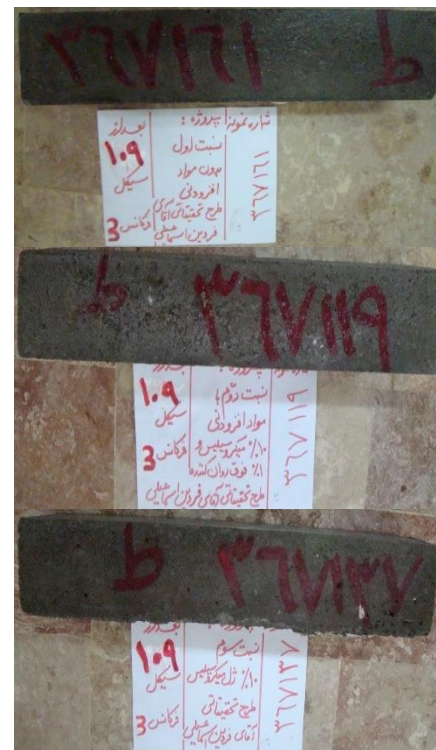 ۳۶۷۱۶۱ ط
شماره نمونه
۳۶۷۱۶۱
پروژه :
نسبت اول
بدون مواد
افزودنی
طرح تحقیقاتی آقای
فردین اسماعیلی
بعد از
۱۰۹
سیکل
فرکانس 3
ط ۳۶۷۱۱۹
۳۶۷۱۱۹
نسبت دوم با
مواد افزودنی
۱۰٪ میکروسیلیس و
۱٪ فوق روان کننده
طرح تحقیقاتی آقای فردین اسماعیلی
۱۰۹
سیکل
فرکانس 3
ط ۳۶۷۱۳۷
۳۶۷۱۳۷
نسبت سوم
۱۰٪ ژل میکروسیلیس
طرح تحقیقاتی
آقای فردین اسماعیلی
بعد از
۱۰۹
سیکل
فرکانس 3